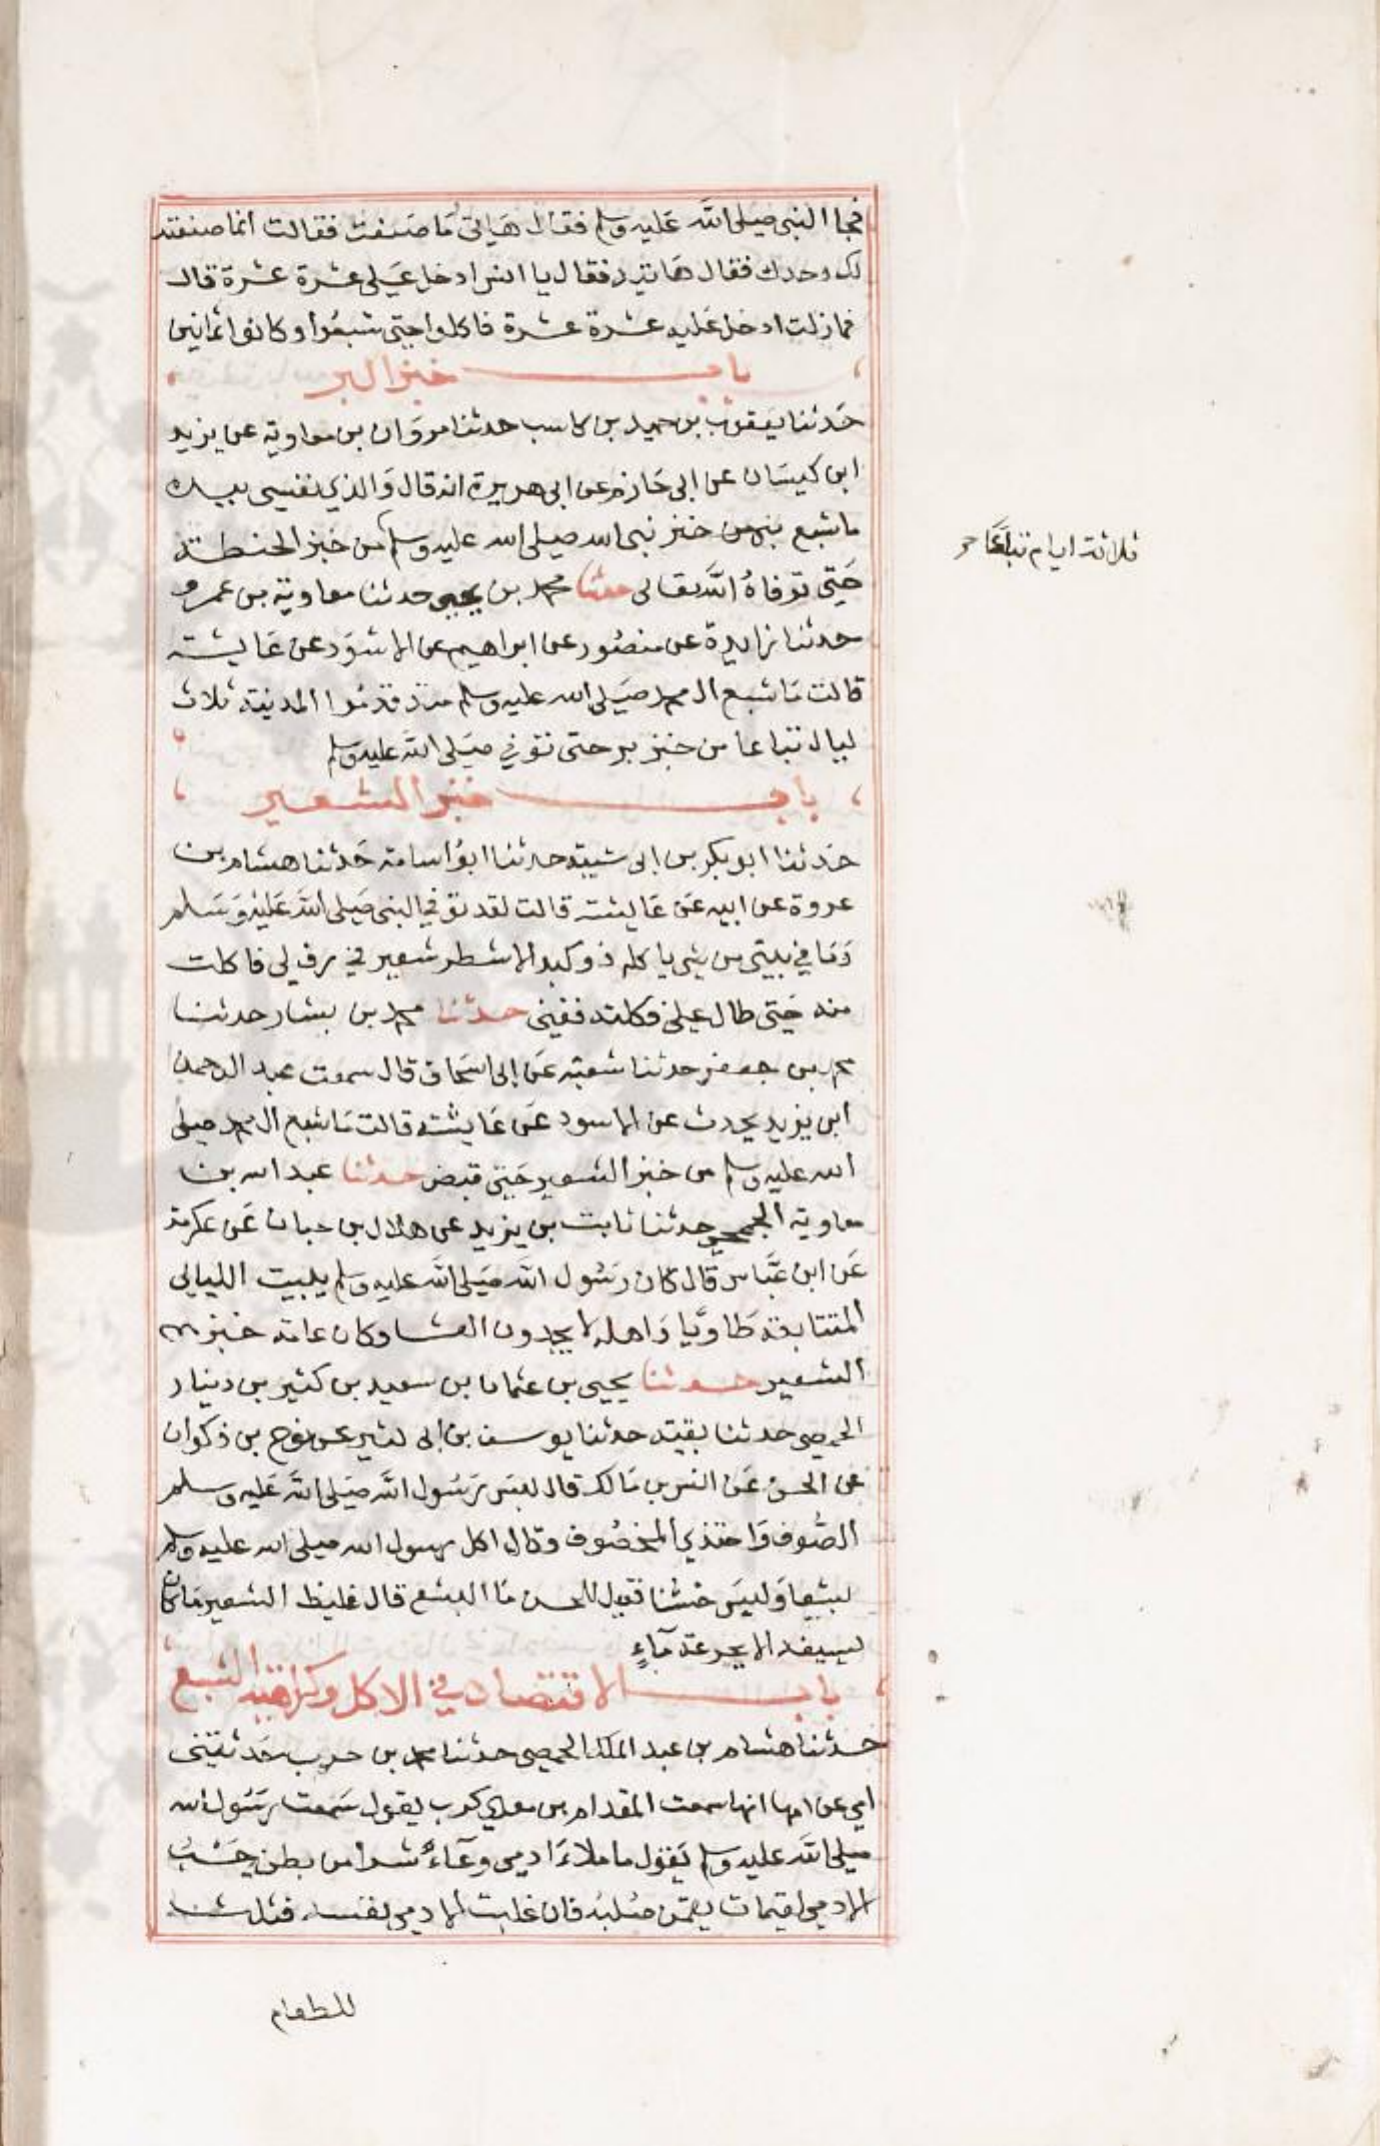 فجا النبى صلى الله عليه وسلم فقال هاتى ما صنعت فقالت انما صنعته
لك وحدك فقال هاتيه فقال يا انس ادخل على عشرة عشرة قال
فما زلت ادخل عليه عشرة عشرة فاكلوا حتى شبعوا وكانوا ثمانين
باب خبز البر
حدثنا يعقوب بن حميد بن كاسب حدثنا مروان بن معاوية عن يزيد
ابن كيسان عن ابى حازم عن ابى هريرة انه قال والذي نفسي بيده
ما شبع نبى الله صلى الله عليه وسلم من خبز الحنطة
ثلاثة ايام تباعا
حتى توفاه الله تعالى حدثنا محمد بن يحيى حدثنا معاوية بن عمرو
حدثنا زايدة عن منصور عن ابراهيم عن الاسود عن عايشة
قالت ما شبع ال محمد صلى الله عليه وسلم منذ قدموا المدينة ثلاث
ليال تباعا من خبز بر حتى توفي صلى الله عليه وسلم
باب خبز الشعير
حدثنا ابو بكر بن ابى شيبة حدثنا ابو اسامة حدثنا هشام بن
عروة عن ابيه عن عايشة قالت لقد توفي النبى صلى الله عليه وسلم
وما في بيتى من شى ياكله ذو كبد الا شطر شعير في رف لى فاكلت
منه حتى طال على فكلته ففنى حدثنا محمد بن بشار حدثنا
محمد بن جعفر حدثنا شعبة عن ابى اسحاق قال سمعت عبد الرحمن
ابن يزيد يحدث عن الاسود عن عايشة قالت ما شبع ال محمد صلى
الله عليه وسلم من خبز الشعير حتى قبض حدثنا عبد الله بن
معاوية الجمحى حدثنا ثابت بن يزيد عن هلال بن خباب عن عكرمة
عن ابن عباس قال كان رسول الله صلى الله عليه وسلم يبيت الليالى
المتتابعة طاويا واهله لا يجدون العشا وكان عامة خبزهم
الشعير حدثنا يحيى بن عثمان بن سعيد بن كثير بن دينار
الحمصي حدثنا بقية حدثنا يوسف بن ابى كثير عن نوح بن ذكوان
عن الحسن عن انس بن مالك قال لبس رسول الله صلى الله عليه وسلم
الصوف واحتذي المخصوف وقال اكل رسول الله صلى الله عليه وسلم
بشعا ولبس خشنا فقيل للحسن ما البشع قال غليظ الشعير ما كان
يسيغه الا بجرعة ماء
باب الاقتصاد في الاكل وكراهية الشبع
حدثنا هشام بن عبد الملك الحمصي حدثنا محمد بن حرب حدثتنى
امي عن امها انها سمعت المقدام بن معدي كرب يقول سمعت رسول الله
صلى الله عليه وسلم يقول ما ملاء ادمى وعاء شرا من بطن حسب
الادمي لقيمات يقمن صلبه فان غلبت الادمي نفسه فثلث
للطعام